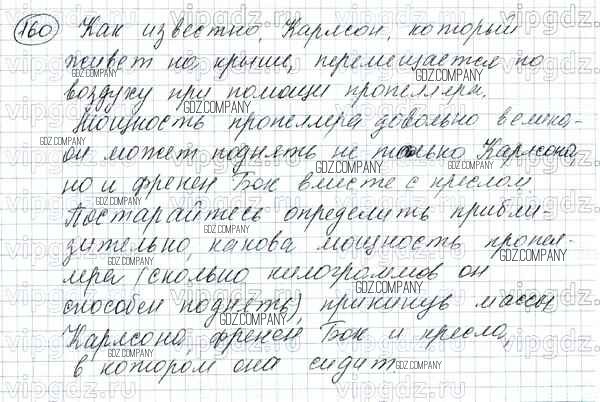 160 Как известно, Карлсон, который
живет на крыше, перемещается по
воздуху при помощи пропеллера.
Мощность пропеллера довольно велика-
он может поднять не только Карлсона,
но и фрекен Бок вместе с креслом
Постарайтесь определить прибли-
зительно, какова мощность пропел-
лера (сколько килограммов он
способен поднять), прикинув массы
Карлсона, фрекен Бок и кресла,
в котором она сидит
GDZ.COMPANY
vipgdz.ru